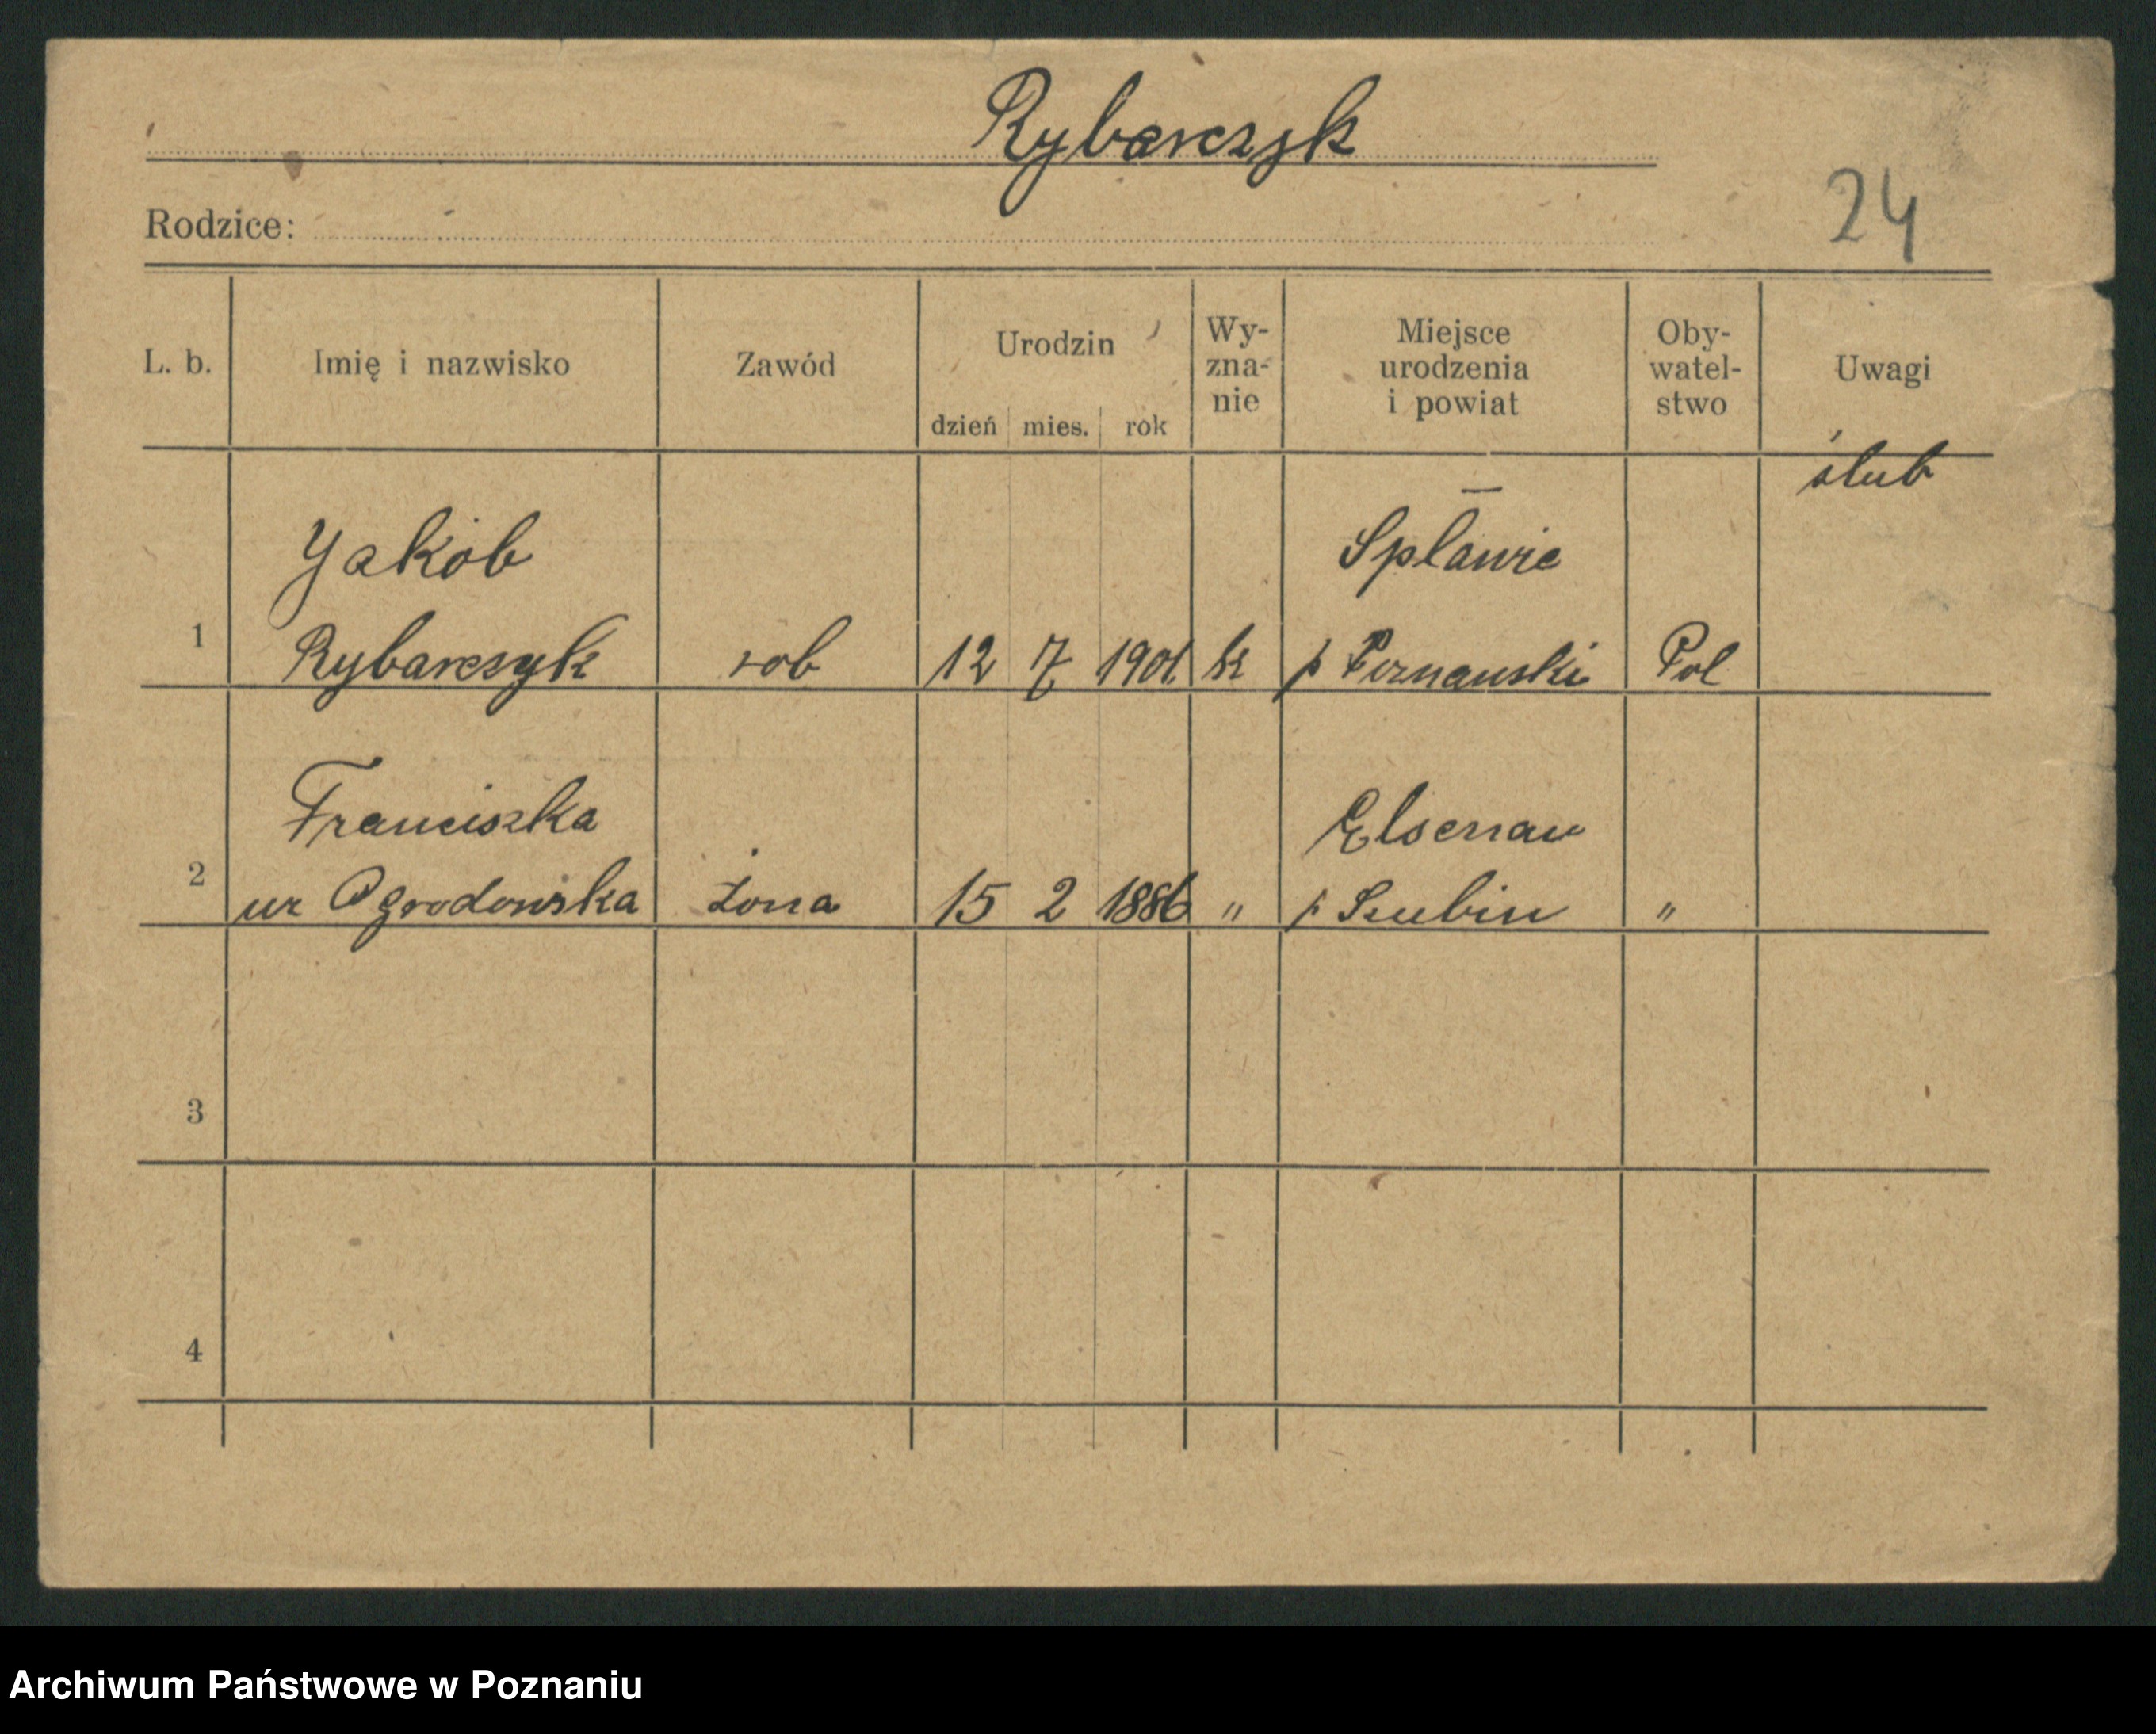 Rybarczyk
Rodzice:
24
L. b.
Imię i nazwisko
Zawód
Urodzin
dzień mies. rok
Wy-
zna-
nie
Miejsce
urodzenia
i powiat
Oby-
watel-
stwo
Uwagi
ślub
Jakób
Spławie
1 Rybarczyk rob 12 7 1901 k p Poznański Pol
Franciszka
Elsenau
2 ur Ogrodowska żona 15 2 1886 " p Szubin "
3
4
Archiwum Państwowe w Poznaniu